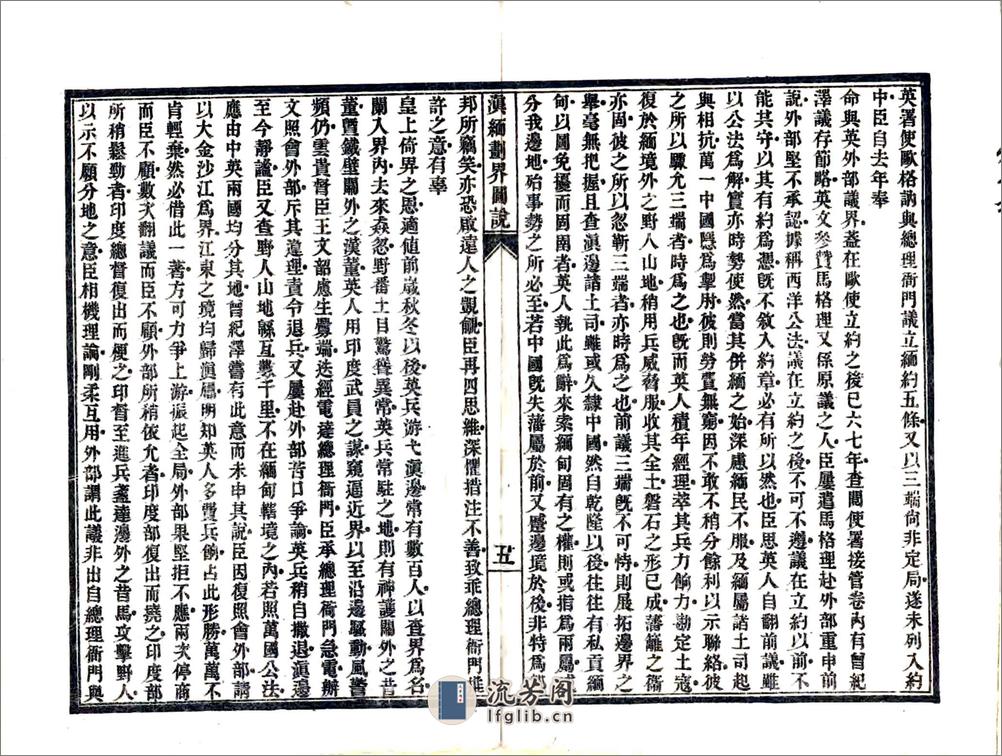 英署使歐格訥與總理衙門議立緬約五條又以三端尚非定局遂未列入約
中臣自去年奉
命與英外部議界蓋在歐使立約之後已六七年查閱使署接管卷內有曾紀
澤議存節略英文參贊馬格理又係原議之人臣屢遣馬格理赴外部重申前
說外部堅不承認據稱西洋公法議在立約之後不可不遵議在立約以前不
能共守以其有約為憑旣不敘入約章必有所以然也臣思英人自翻前議雖
以公法為解實亦時勢使然當其併緬之始深慮緬民不服及緬屬諸土司起
與相抗萬一中國隱為掣肘彼則勞費無窮因不敢不稍分餘利以示聯絡彼
之所以驟允三端者時為之也旣而英人積年經理萃其兵力餉力勘定土寇
復於緬境外之野人山地稍用兵威脅服收其全土磐石之形已成藩籬之衞
亦固彼之所以忽靳三端者亦時為之也前議三端旣不可恃則展拓邊界之
舉毫無把握且查滇邊諸土司雖或久隸中國然自乾隆以後往往有私貢緬
甸以圖免擾而固圉者英人執此為辭來索緬甸固有之權則或指為兩屬或
分我邊地殆事勢之所必至若中國旣失藩屬於前又蹙邊境於後非特為鄰
滇緬劃界圖說
五
邦所竊笑亦恐啟遠人之覬覦臣再四思維深懼措注不善致乖總理衙門進
許之意有辜
皇上倚界之恩適値前歲秋冬以後英兵游弋滇邊常有數百人以查界為名
闌入界內去來猋忽野番土目驚聳異常英兵常駐之地則有神護關外之昔
董曁鐵壁關外之漢董英人用印度武員之謀窺逼近界以至沿邊騷動風警
頻仍雲貴督臣王文韶慮生釁端迭經電達總理衙門臣承總理衙門急電辦
文照會外部斥其違理責令退兵又屢赴外部苦口爭論英兵稍自撤退滇邊
至今靜謐臣又查野人山地緜亙數千里不在緬甸轄境之內若照萬國公法
應由中英兩國均分其地曾紀澤嘗有此意而未申其說臣因復照會外部請
以大金沙江為界江東之境均歸滇屬明知英人多費兵餉占此形勝萬萬不
肯輕棄然必借此一著方可力爭上游振起全局外部果堅拒不應兩次停商
而臣不顧數次翻議而臣不顧外部所稍依允者印度部復出而撓之印度部
所稍鬆勁者印度總督復出而梗之印督至進兵盞達邊外之昔馬攻擊野人
以示不願分地之意臣相機理論剛柔互用外部謂此議非出自總理衙門與
流芳閣
lfglib.cn